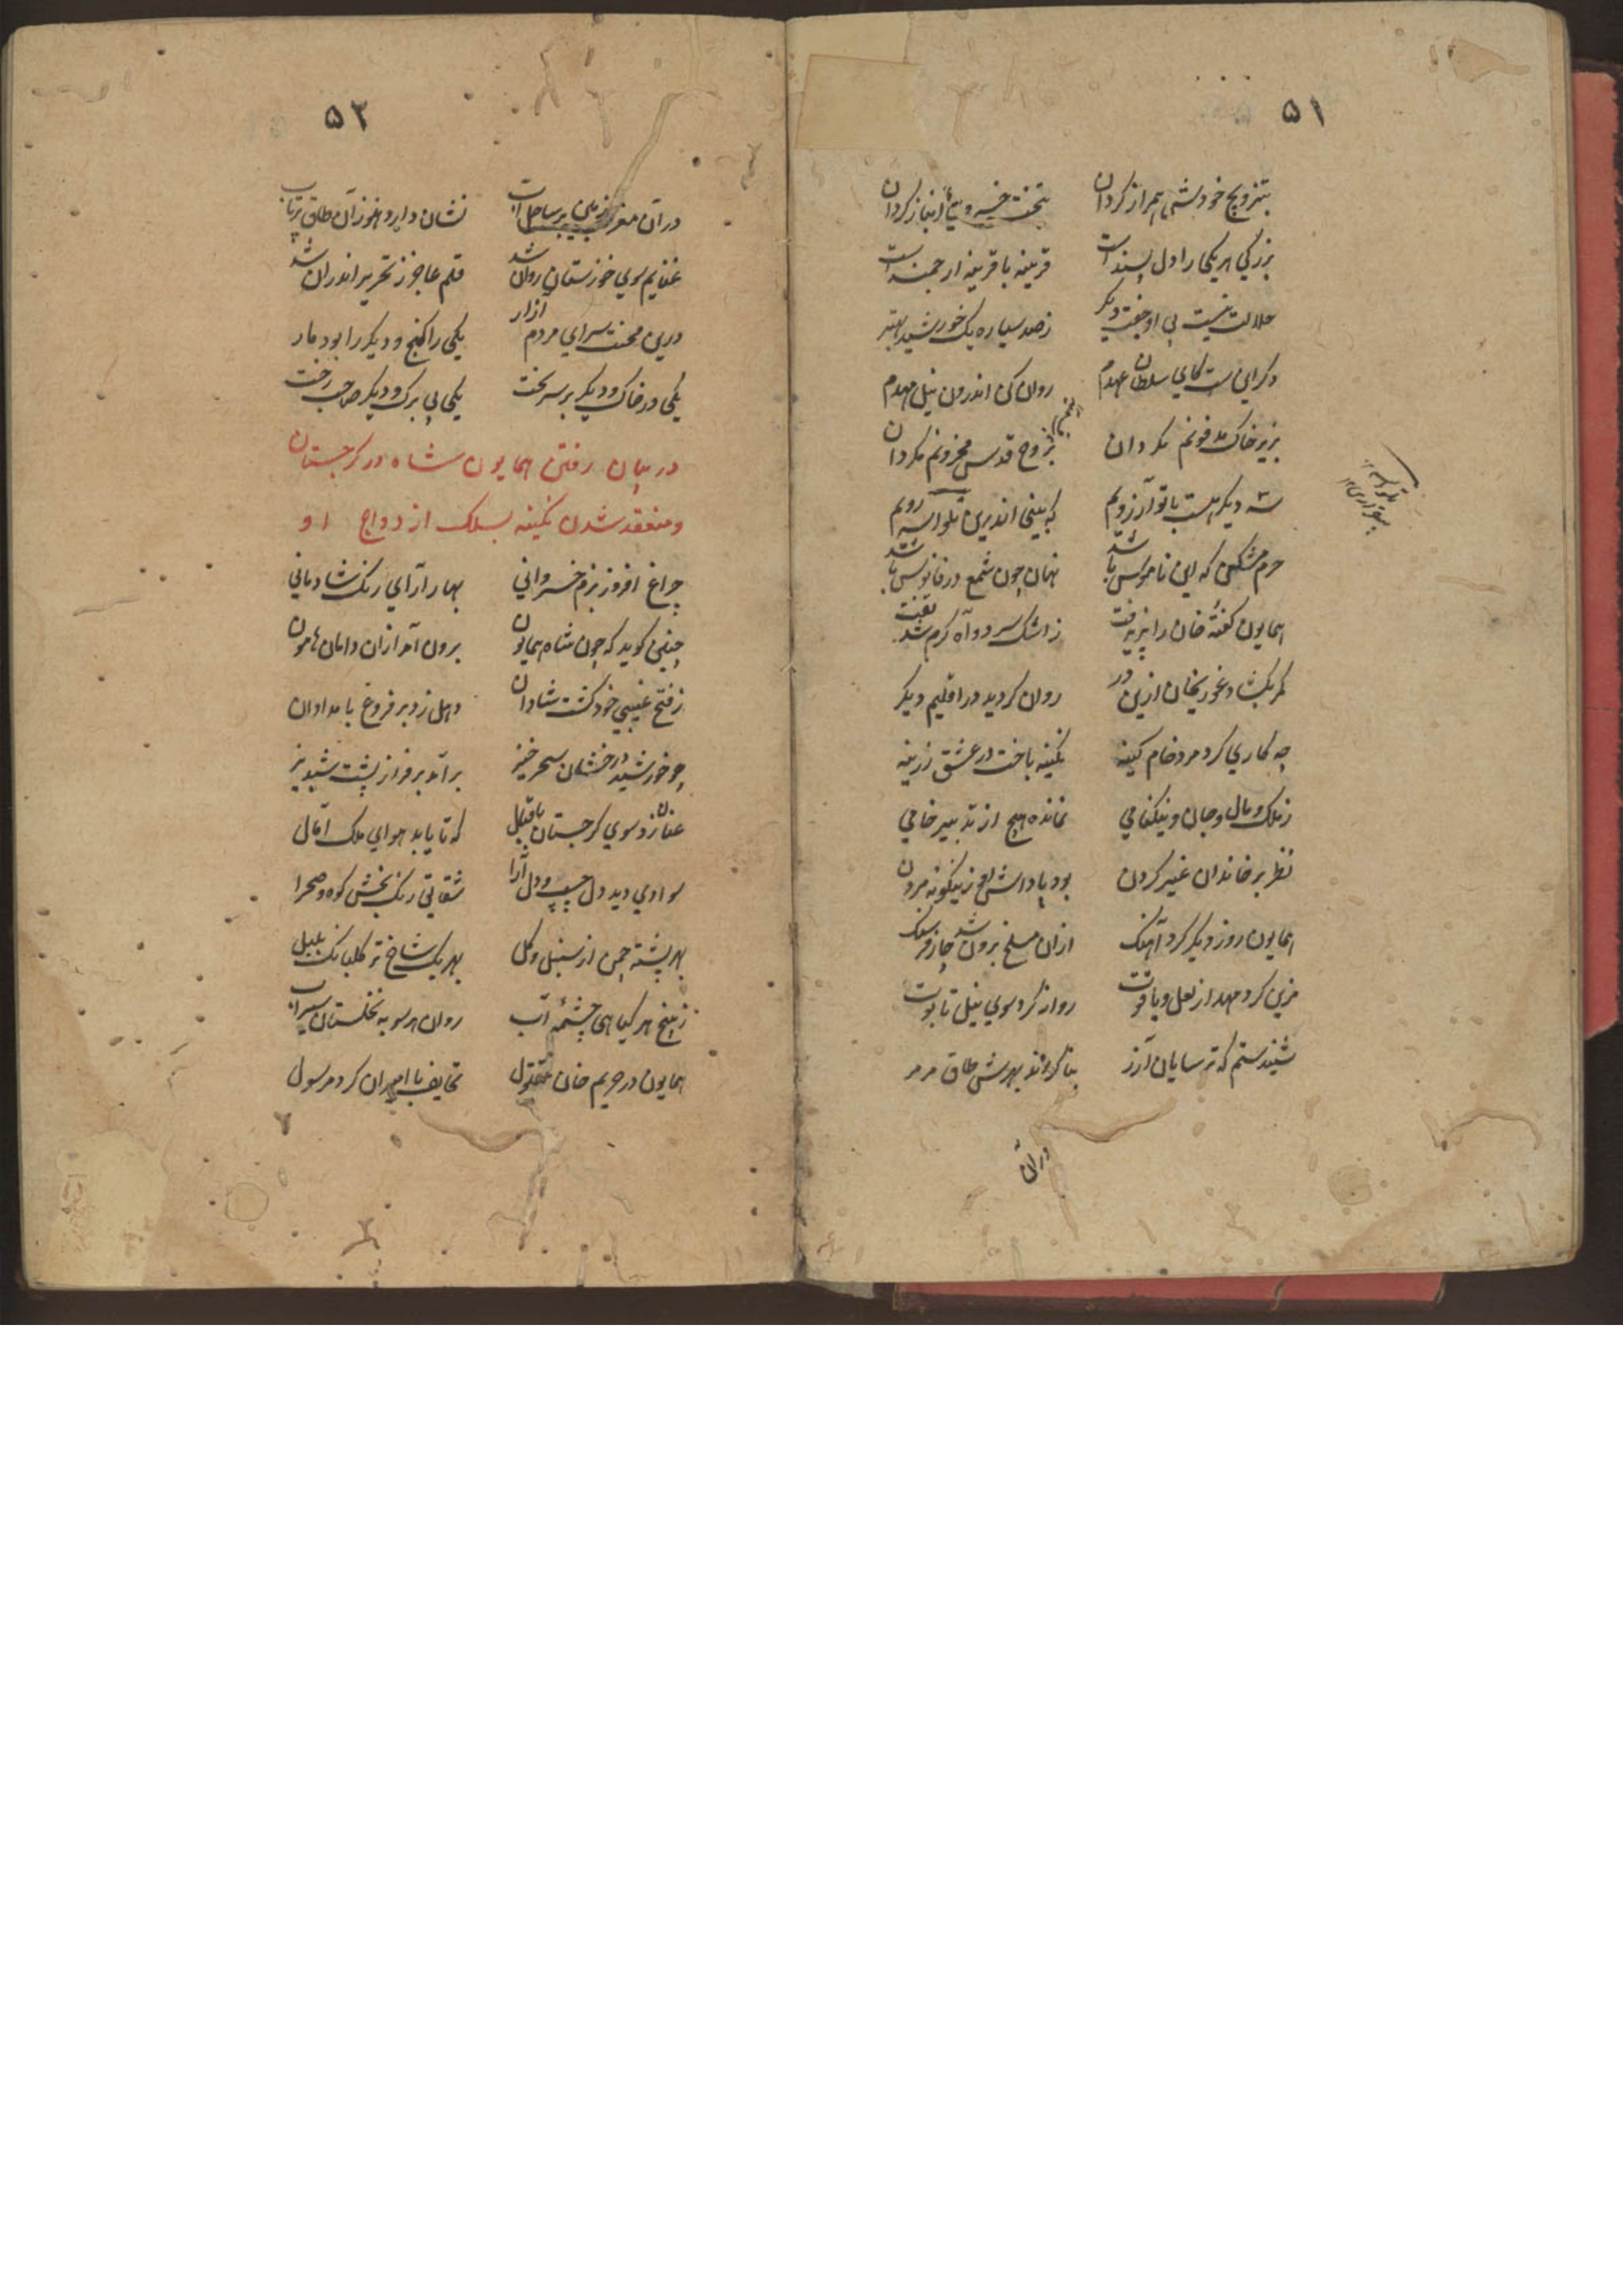 ۵۱
بتزویج خودش همراز گردان بتخت خسروی انباز گردان
بزرگی هر یکی را دل پسندست قرینه با قرینه ارجمندست
حلالت نیست بی او جفت دیگر ز صد سیاره یک خورشید بهتر
دگر این ست کای سلطان عهدم روان کن اندرون نیل مهدم
بزیر خاک مدفونم مگردان بروح قدس محزونم مگردان
سه دیگر هست با تو آرزویم که بینی اندرین تلواسه رویم
حرم مشکن که این ناموس باشد نهان چون شمع در فانوس باشد
همایون گفتهٔ خان را پذیرفت ز اشک سرد و آه گرم شد تفت
کمر بگشاد غوریخان ازین در روان گردید در اقلیم دیگر
چه کاری کرد مرد خام کینه نگینه باخت در عشق زرینه
ز ملک و مال و جان و نیکنامی نمانده هیچ از تدبیر خامی
نظر بر خاندان غیر کردن بود پاداش او زینگونه مردن
همایون روز دیگر کرد آهنگ ازان مسلخ برون شد چار فرسنگ
مزین کرد مهد از لعل و یاقوت روان کرد سوی نیل تابوت
شنیدستم که ترسایان آزر بنا کردند بهرش طاق مرمر
دران
۵۲
دران مغرب زمین بر ساحل آب نشان دارد هنوز آن طاق پرتاب
غنایم سوی خوزستان روان شد قلم عاجز ز تحریر اندران شد
درین محنت سرای مردم آزار یکی را گنج و دیگر را بود مار
یکی در خاک و دیگر بر سر تخت یکی بی برگ و دیگر صاحب رخت
در بیان رفتن همایون شاه در گرجستان
و منعقد شدن نگینه بسلک ازدواج او
چراغ افروز بزم خسروانی بهار آرای رنگ شادمانی
چنین گوید که چون شاه همایون برون آمد ازان دامان هامون
ز فتح غیبی خود گشت شادان دهل زد بر فروغ بامدادان
چو خورشید درخشان سحرخیز برآمد بر فراز پشت شبدیز
عنان زد سوی گرجستان باقبال که تا یابد هوای ملک آمال
سوادی دید دلچسپ و دل آرا شقایق رنگ بخش کوه و صحرا
بهر پشته چمن از سنبل و گل بهر یک شاخ تر گلبانگ بلبل
ز بیخ هر گیاهی چشمهٔ آب روان هر سو به نخلستان سیراب
همایون در حریم خان مقتول تحایف با امیران کرد مرسول